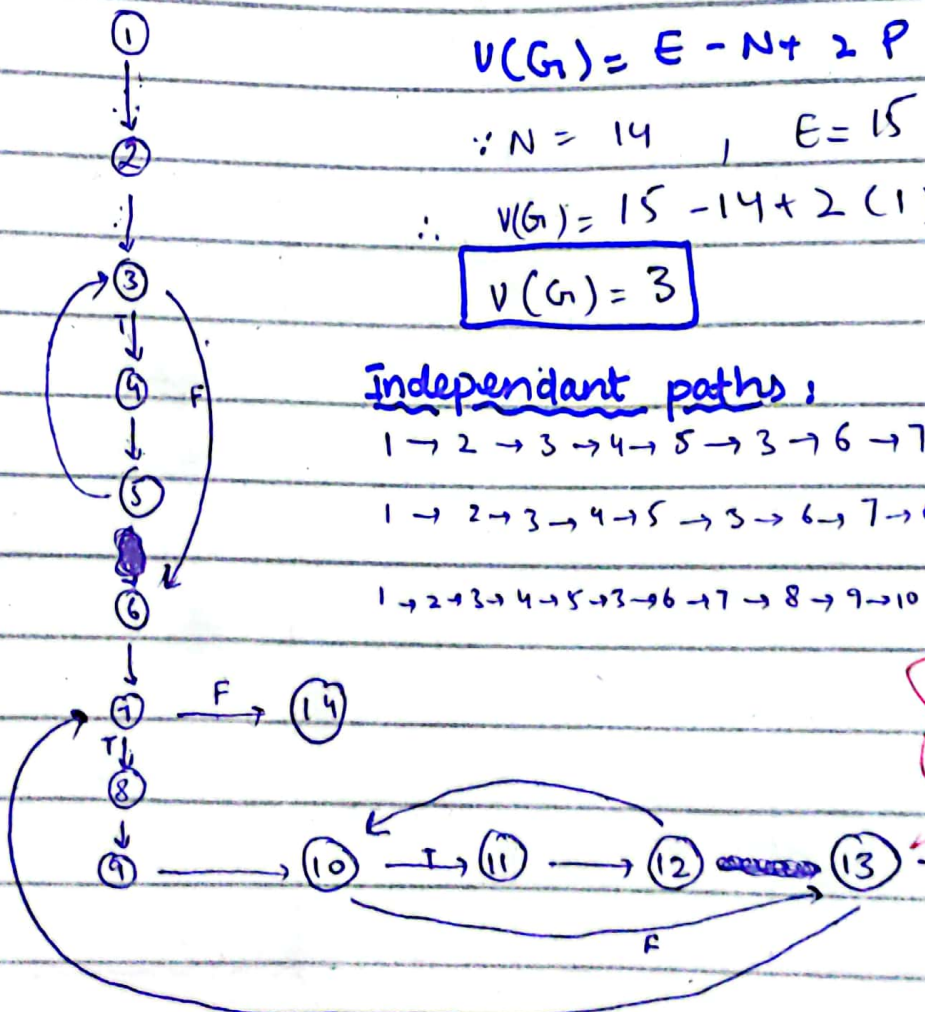 V(G) = E - N + 2 P
∵ N = 14 , E = 15
∴ V(G) = 15 - 14 + 2 (1
V(G) = 3
Independant paths :
1 → 2 → 3 → 4 → 5 → 3 → 6 → 7
1 → 2 → 3 → 4 → 5 → 3 → 6 → 7 →
1 → 2 → 3 → 4 → 5 → 3 → 6 → 7 → 8 → 9 → 10
1
2
3
T
4 F
5
6
7 F 14
T
8
9 10 T 11 12 13
F